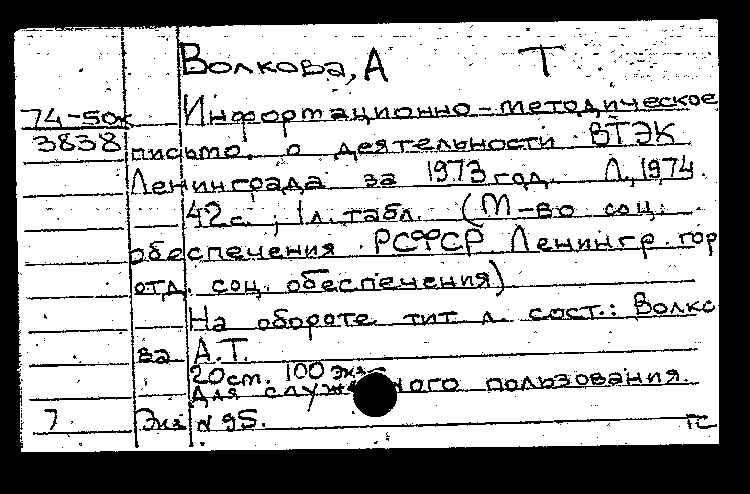 Волкова, А Т
74-50к Информационно-методическое
3838 письмо о деятельности ВТЭК
Ленинграда за 1973 год. Л., 1974.
42с., 1л. табл. (М-во соц.
обеспечения РСФСР Ленингр. гор
отд. соц. обеспечения)
На обороте тит л. сост.: Волко
ва А.Т.
20 cm. 100 экз
Для служ ного пользования.
7 Экз N 95.